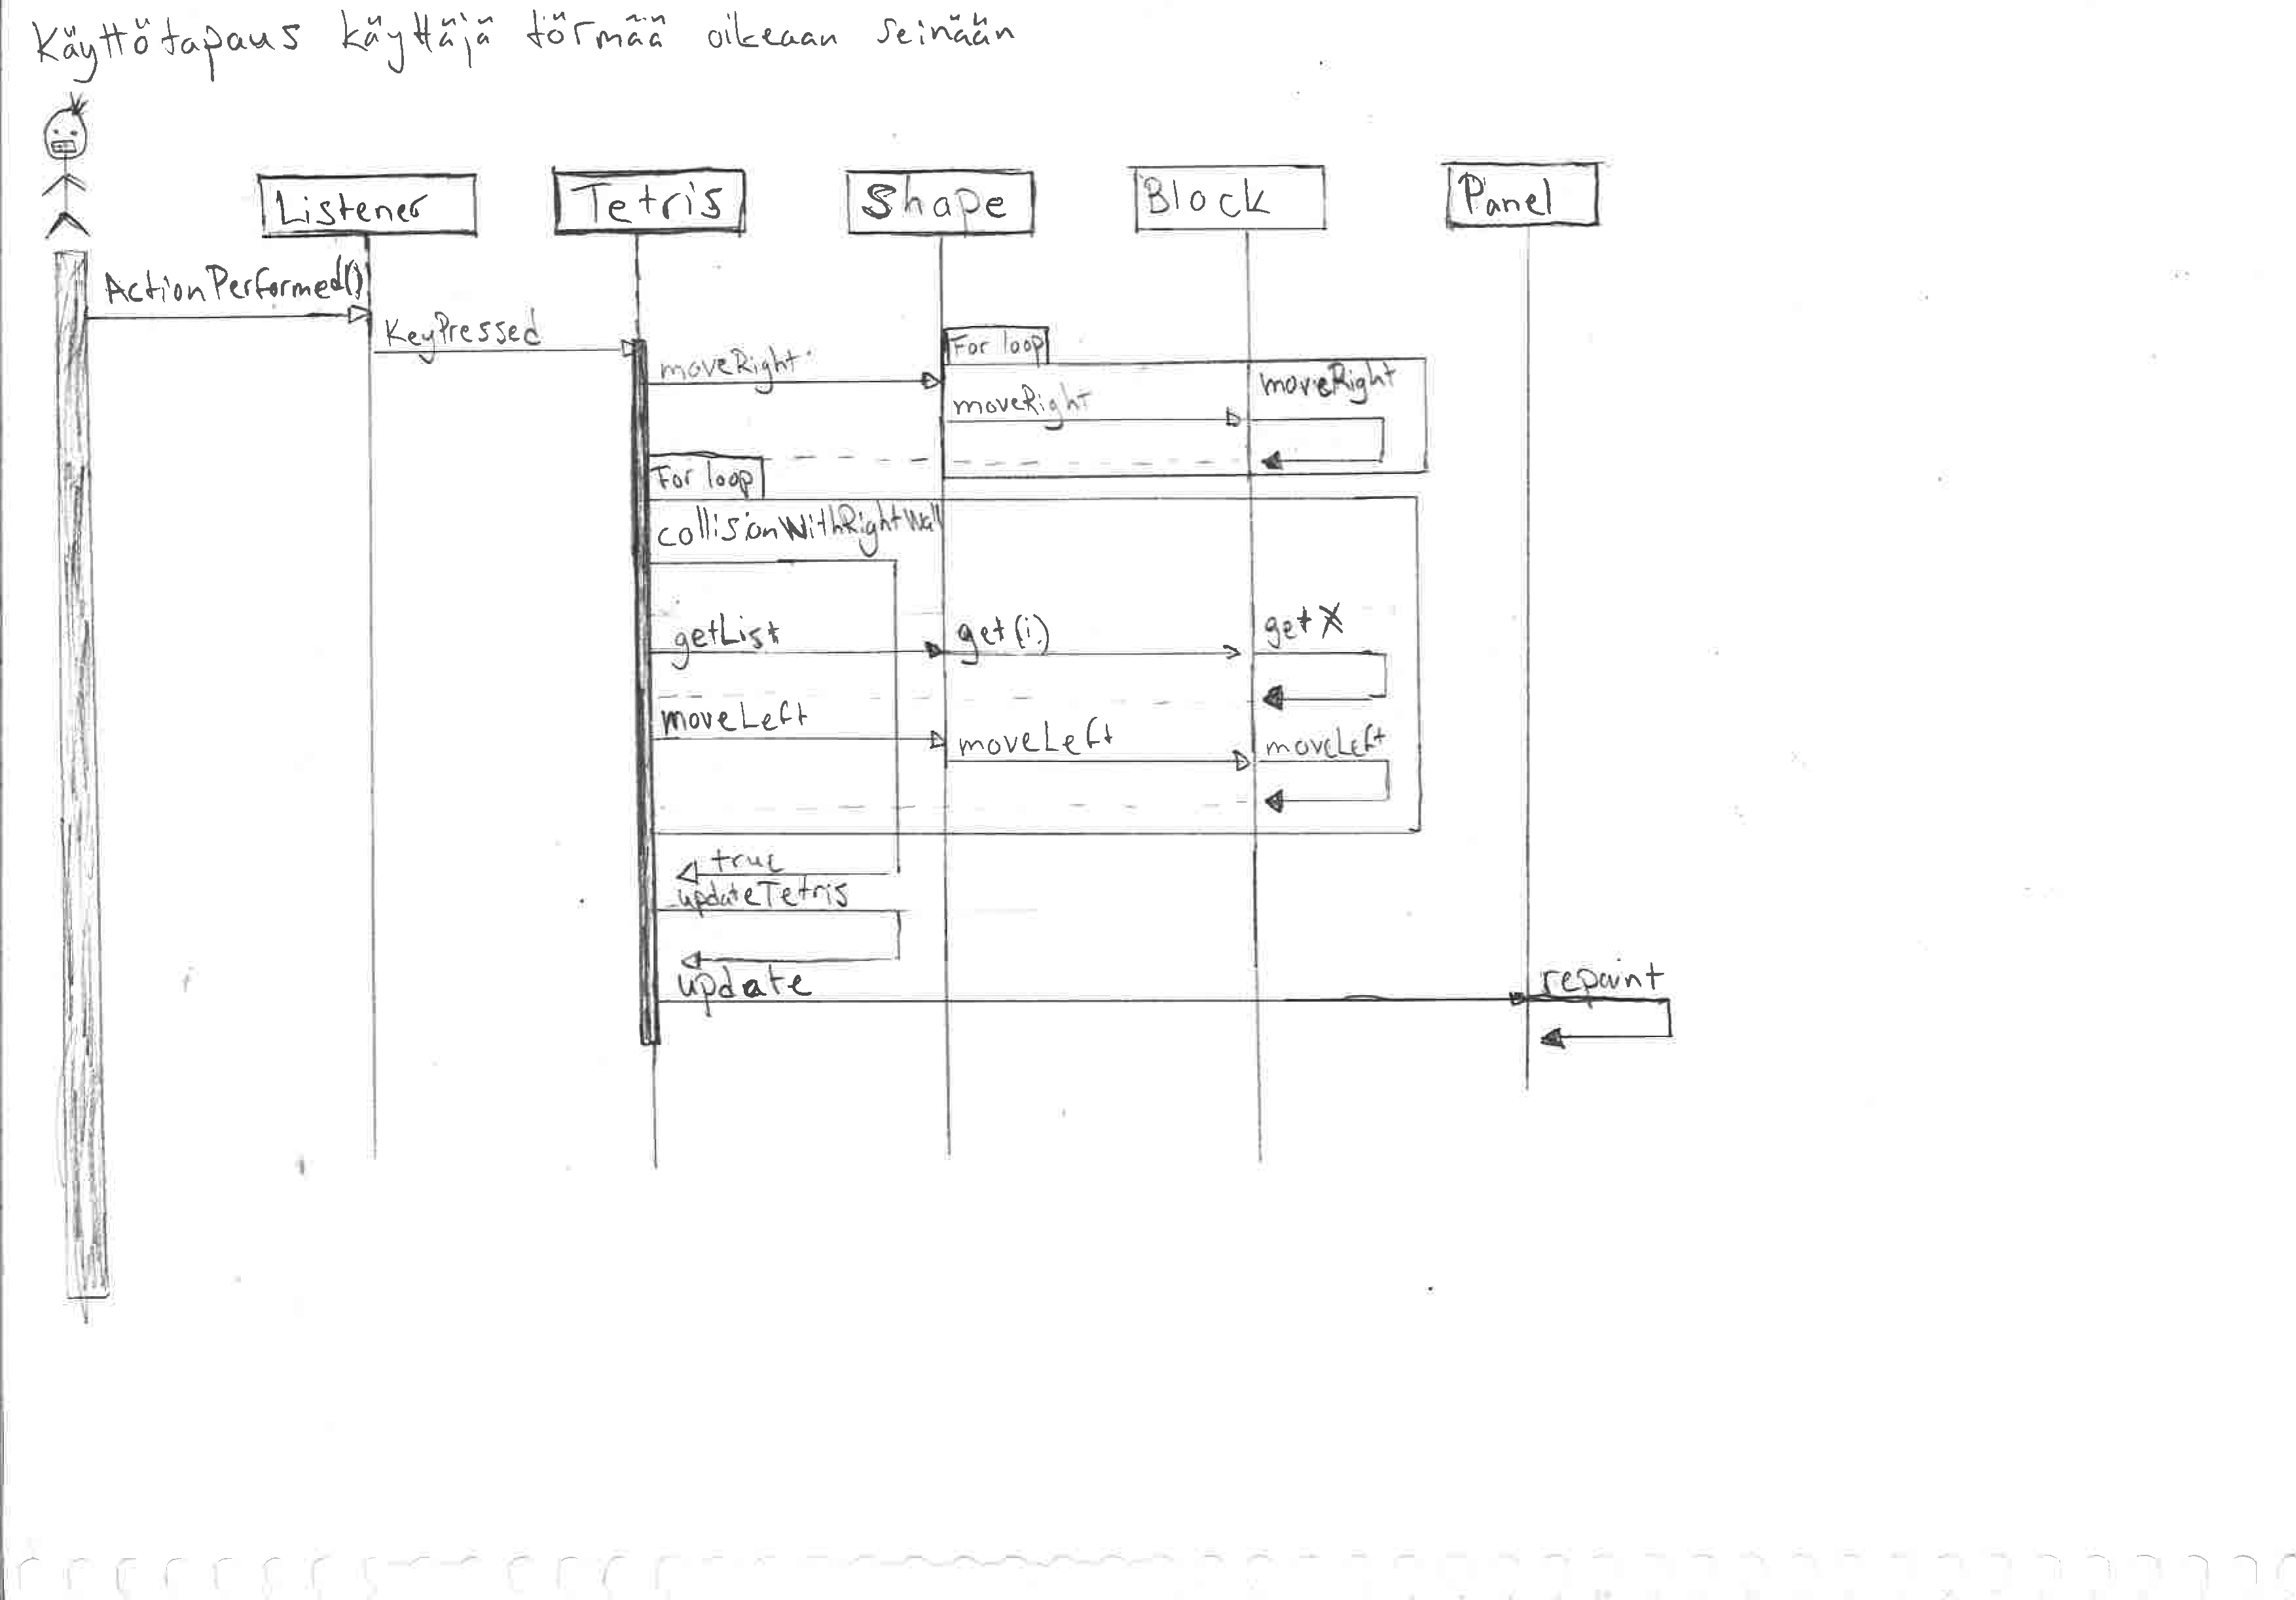 Käyttötapaus käyttäjä törmää oikeaan seinään
Listener
Tetris
Shape
Block
Panel
ActionPerformed()
KeyPressed
moveRight
For loop
moveRight
moveRight
For loop
collisionWithRightWall
getList
get(i)
getX
moveLeft
moveLeft
moveLeft
true
updateTetris
update
repaint